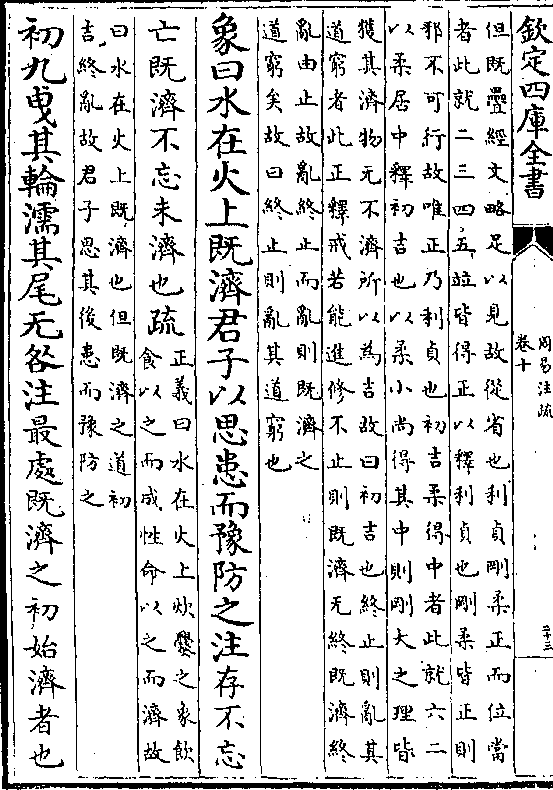 欽定四庫全書
周易注疏
卷十
二十三
但既疊經文略足以見故從省也利貞剛柔正而位當
者此就二三四五竝皆得正以釋利貞也剛柔皆正則
邪不可行故唯正乃利貞也初吉柔得中者此就六二
以柔居中釋初吉也以柔小尚得其中則剛大之理皆
獲其濟物无不濟所以為吉故曰初吉也終止則亂其
道窮者此正釋戒若能進修不止則既濟无終既濟終
亂由止故亂終止而亂則既濟之
道窮矣故曰終止則亂其道窮也
象曰水在火上既濟君子以思患而豫防之注存不忘
亡既濟不忘未濟也疏
正義曰水在火上炊爨之象飲
食以之而成性命以之而濟故
曰水在火上既濟也但既濟之道初
吉終亂故君子思其後患而豫防之
初九曳其輪濡其尾无咎注最處既濟之初始濟者也